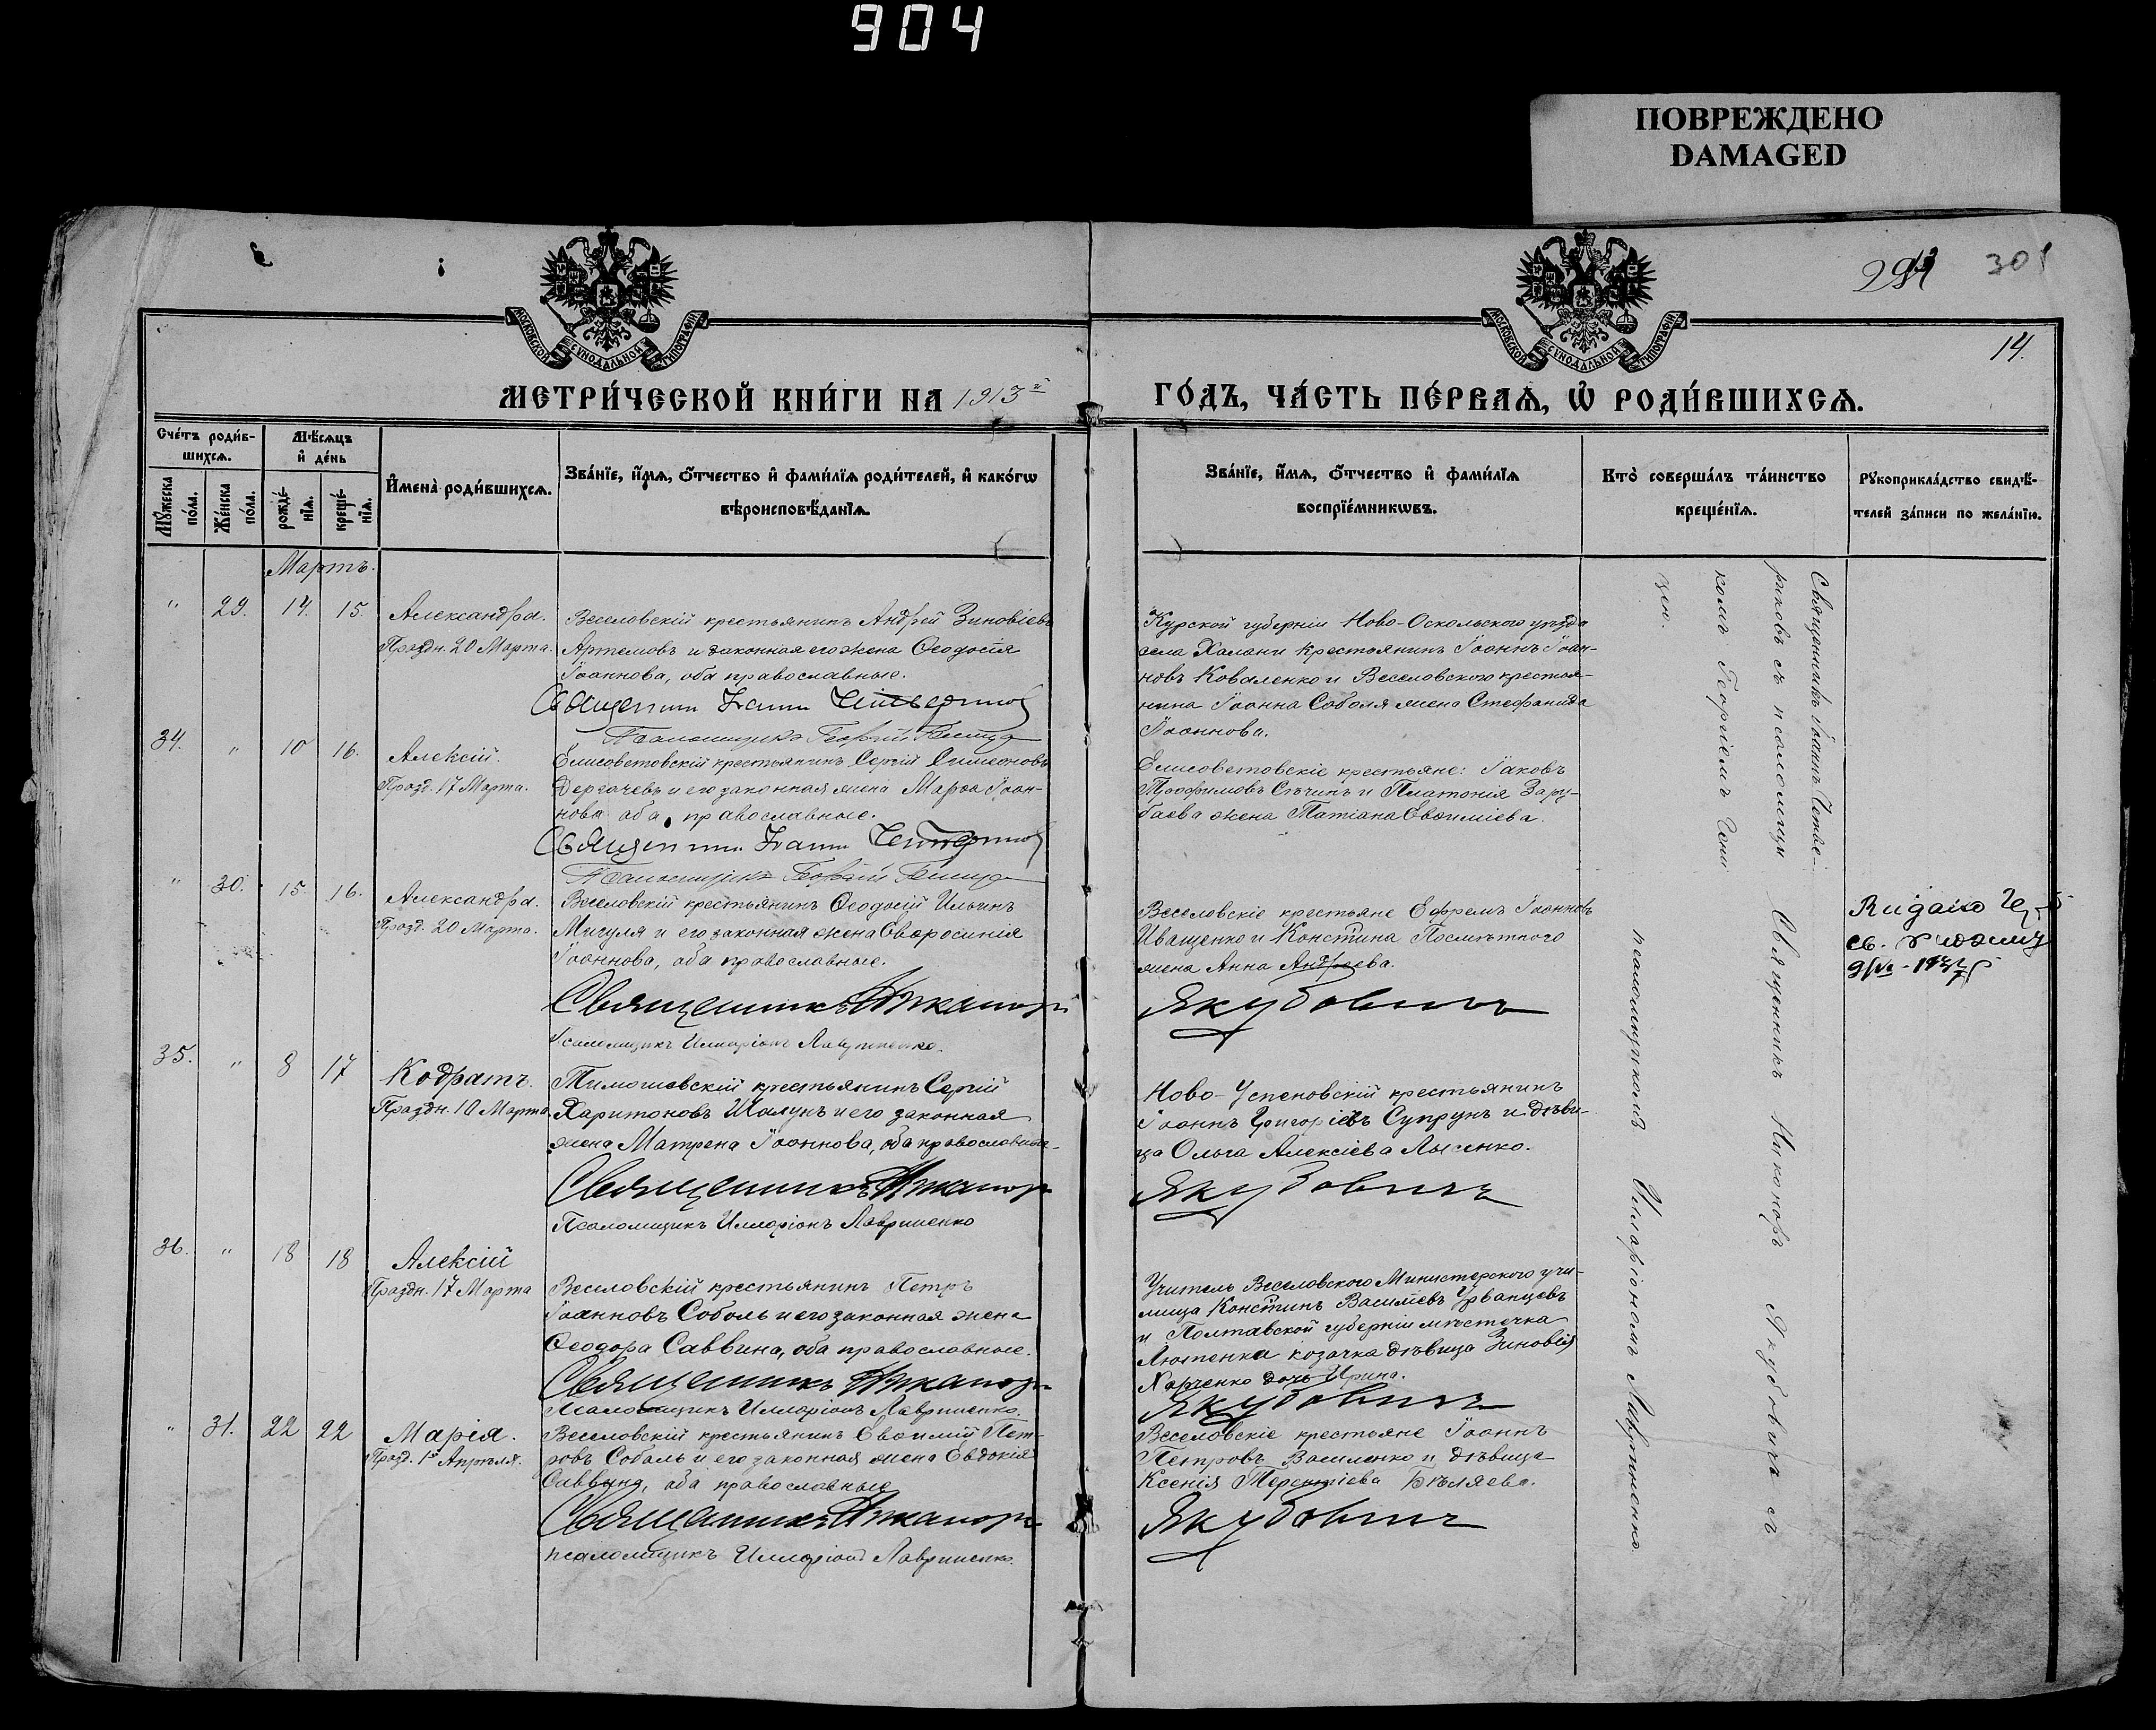 904
ПОВРЕЖДЕНО
DAMAGED
МОСКОВСКОЙ СѴНОДАЛЬНОЙ ТИПОГРАФІИ
МОСКОВСКОЙ СѴНОДАЛЬНОЙ ТИПОГРАФІИ
301
14.
МЕТРИ́ЧЕСКОЙ КНИ́ГИ НА 1913й
ГО́ДЪ, ЧА́СТЬ ПЕ́РВАѦ, Ѡ҆ РОДИ́ВШИХСѦ.
Сче́тъ роди́в-
шихсѧ.
Мꙋ́жеска
по́ла.
Же́нска
по́ла.
Мѣ́сѧцъ
и҆ де́нь
рожде́-
нїѧ.
креще́-
нїѧ.
И҆мена̀ роди́вшихсѧ.
Зва́нїе, и҆́мѧ, ѻ҆́тчество и҆ фами́лїѧ роди́телей, и҆ како́гѡ
вѣроисповѣ́данїѧ.
Зва́нїе, и҆́мѧ, ѻ҆́тчество и҆ фами́лїѧ
воспрїе́мникѡвъ.
Кто̀ соверша́лъ та́инство
креще́нїѧ.
Рꙋкоприкла́дство свидѣ́-
телей за́писи по жела́нїю.
Мартъ.
" 29. 14. 15. Александра.
Праздн. 20 Марта.
Веселовскій крестьянинъ Андрей Зиновіевъ
Артемовъ и законная его жена Ѳеодосія
Іоаннова, оба православные.
Священникъ Іоаннъ
Псаломщикъ Георгій
Курской губерніи Ново-Оскольскаго уѣзда
села Халани крестьянинъ Іоаннъ Іоан-
новъ Коваленко и Веселовского крестья-
нина Іоанна Соболя жена Стефанида
Іоаннова.
34. " 10 16. Алексій.
Празд. 17 Марта.
Елисоветовскій крестьянинъ Сергій Симеоновъ
Дергачевъ и его законная жена Марѳа Іоан-
нова оба православные.
Священникъ Іоаннъ
Псаломщикъ Георгій
Елисоветовскіе крестьяне: Іаковъ
Трофимовъ Сѣчинъ и Платонія Зару-
баева жена Татіана Евѳиміева.
" 30. 15. 16. Александра.
Празд. 20 Марта.
Веселовскій крестьянинъ Ѳеодосій Ильинъ
Мигуля и его законная жена Евфросинія
Іоаннова, оба православные.
Священникъ Никаноръ
Псаломщикъ Иларіонъ Лавриненко.
Веселовскіе крестьяне Ефремъ Іоанновъ
Иващенко и Констина Посмѣтного
жена Анна Андреева.
Якубовичъ
35. " 8 17 Кодратъ.
Праздн. 10 Марта.
Тимошовскій крестьянинъ Сергій
Харитоновъ Шалунъ и его законная
жена Матрена Іоаннова, оба православные.
Священникъ Никаноръ
Псаломщикъ Илларіонъ Лавриненко
Ново-Успеновскій крестьянинъ
Іоаннъ Григоріевъ Супрунъ и дѣви-
ца Ольга Алексіева Лысенко.
Якубовичъ
36. " 18 18 Алексій
Праздн. 17 Марта
Веселовскій крестьянинъ Петръ
Іоанновъ Соболь и его законная жена
Ѳеодора Саввина, оба православные.
Священникъ Никаноръ
Псаломщикъ Илларіонъ Лавриненко.
Учитель Веселовского Министерского учи-
лища Констинъ Василіевъ Урванцевъ
и Полтавской губерніи мѣстечка
Лютенки козачка дѣвица Зиновія
Харченко дочь Ирина.
Якубовичъ
" 31. 22 22 Марія.
Празд. 1го Апрѣля.
Веселовскій крестьянинъ Евѳимій Пет-
ровъ Соболь и его законная жена Евдокія
Саввина, оба православные
Священникъ Никаноръ
псаломщикъ Илларіонъ Лавриненко.
Веселовскіе крестьяне Іоаннъ
Петровъ Василенко и дѣвица
Ксенія Терентіева Бѣляева.
Якубовичъ
Священникъ Іоаннъ Четве-
риковъ съ псаломщи
комъ Георгіемъ
цею.
Священникъ Никаноръ Якубовичъ съ
псаломщикомъ Иларіономъ Лавриненко.
св.